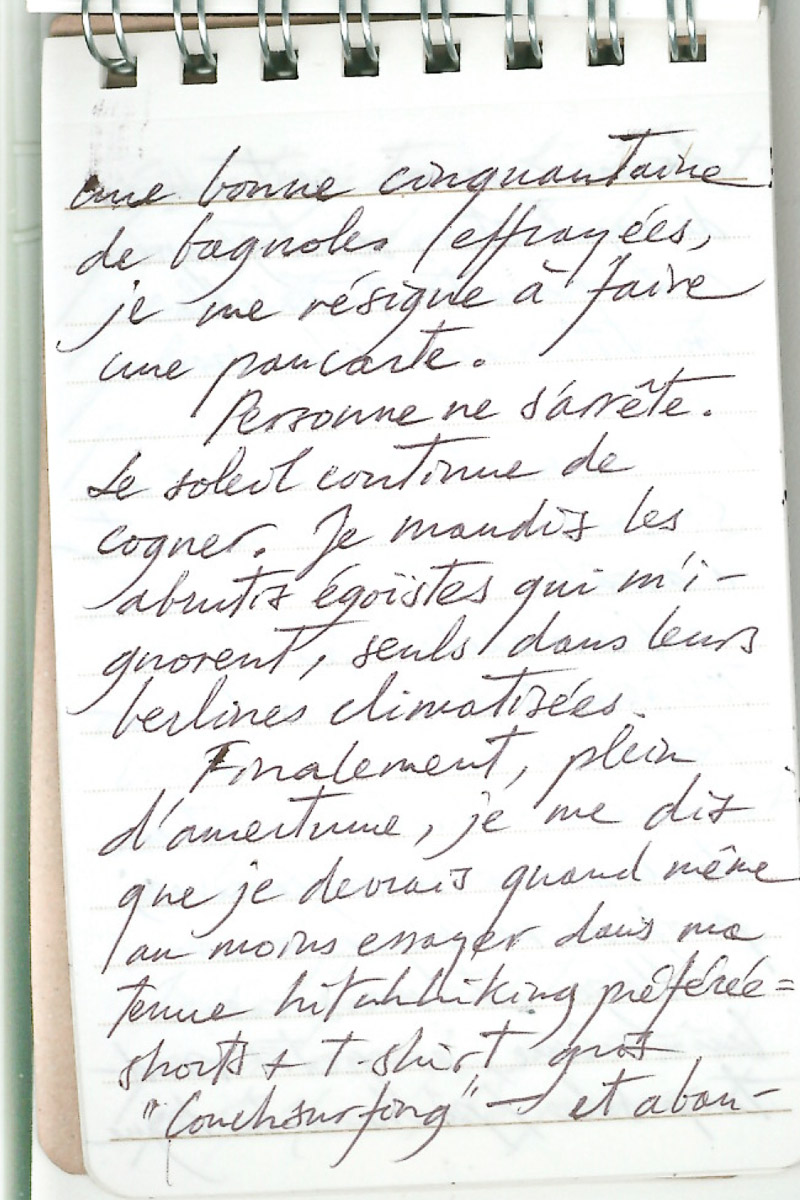 une bonne cinquantaine
de bagnoles effrayées,
je me résigne à faire
une pancarte.
Personne ne s'arrête.
Le soleil continue de
cogner. Je maudis les
abrutis égoïstes qui m'i-
gnorent, seuls dans leurs
berlines climatisées.
Finalement, plein
d'amertume, je me dis
que je devrais quand même
au moins essayer dans ma
tenue hitchhiking préférée =
shorts + t-shirt gros
"Couchsurfing" — et aban-